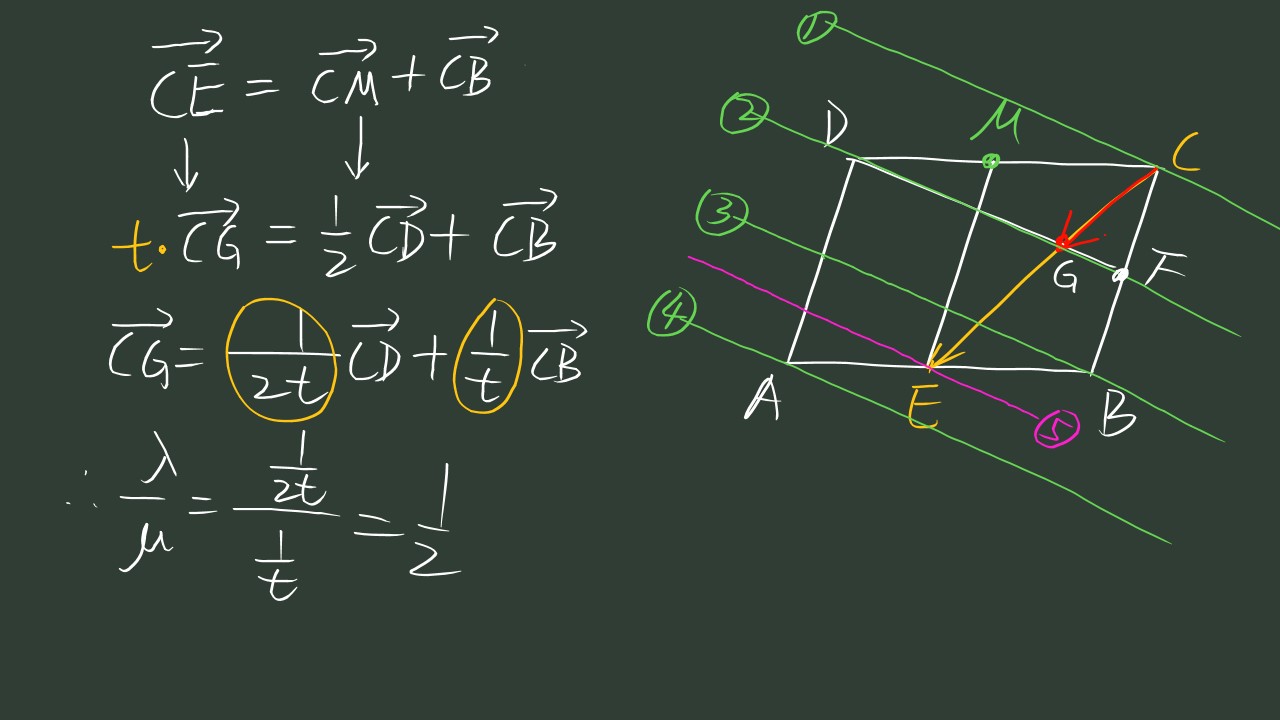 $\overrightarrow{CE} = \overrightarrow{CM} + \overrightarrow{CB}$
↓ ↓
$t \cdot \overrightarrow{CG} = \frac{1}{2}\overrightarrow{CD} + \overrightarrow{CB}$
$\overrightarrow{CG} = \frac{1}{2t}\overrightarrow{CD} + \frac{1}{t}\overrightarrow{CB}$
$\therefore \frac{\lambda}{\mu} = \frac{\frac{1}{2t}}{\frac{1}{t}} = \frac{1}{2}$
①
② D M C
③ G F
④
A E B
⑤